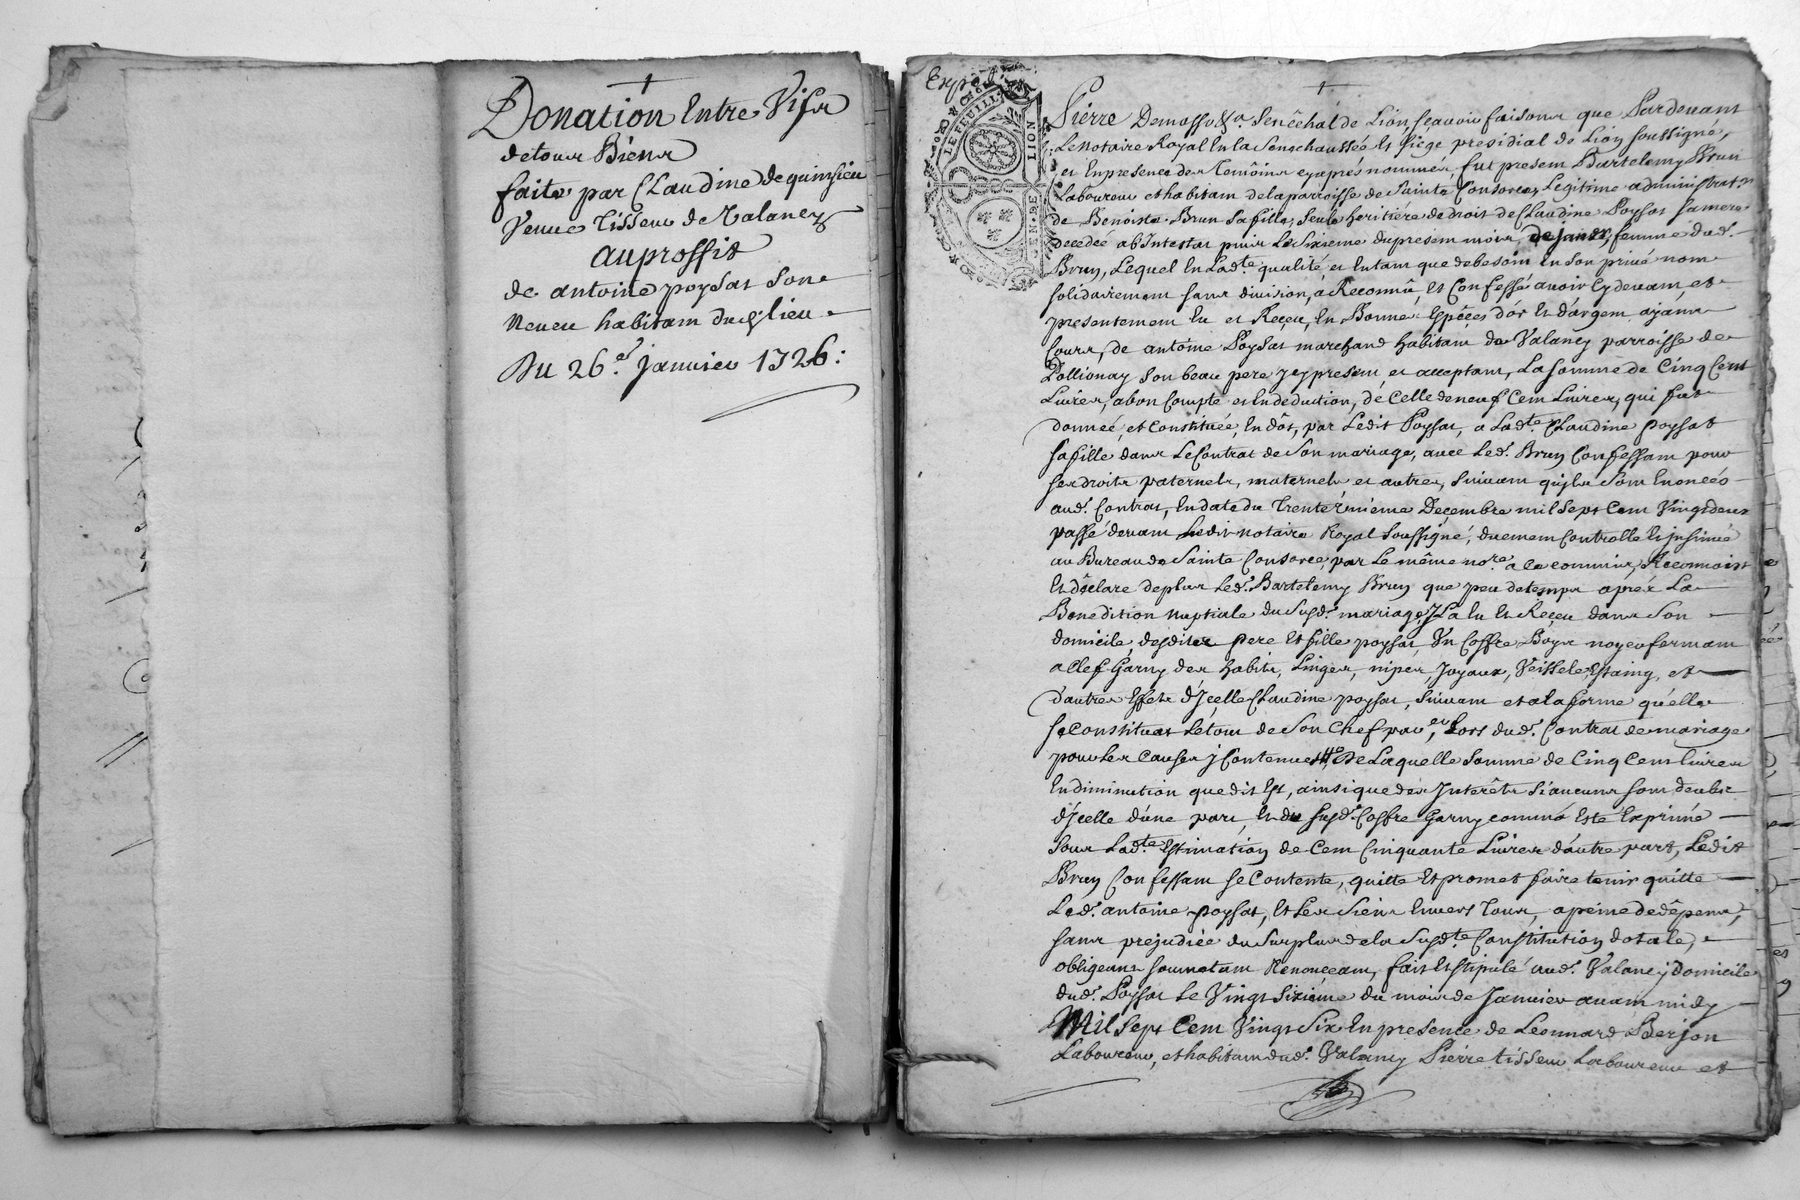 Donation Entre Vifs
detous Biens
faite par Claudine de quinsieu
Veuve Tisseur de Valancy
au proffit
de antoine poysat son
Neveu habitant dud. lieu
Du 26e. Janvier 1726:
Expd.
LE FEUILL
LION
GEN. DE
Pierre Demasso &a. Senêchal de Lion, sçavoir faisons que Pardevant
Le Notaire Royal En la Senechaussée Et siege presidial de Lion soussigné,
et En presence des Temôins cy aprés nommés, fut present Bartelemy Brun
Laboureur et habitant de la parroisse de Sainte Consorce, Legitime administrateur
de Benoiste Brun sa fille, seule heritiére de droit de Claudine Poysat sa mere
decedée ab Intestat puis Le Sixieme du present mois de janer, femme dud.
Brun, Lequel En Ladte. qualité et Entant que de besoin En son privé nom
solidairement sans division, a Reconnû, Et Confessé avoir Cy devant, et
presentement Eu et Reçeu, En Bonnes Espéces d'or Et d'argent ayant
Cours, de antoine Poysat marchand habitant de Valancy parroisse de
Pollionay son beau pere icy present et acceptant, La somme de Cinq Cent
Livres, a bon Compte et En deduction, de Celle de neuf Cent Livres, qui fut
donnée, et Constituée, En dôt, par Ledit Poysat, a Ladte. Claudine poysat
sa fille dans Le Contrat de Son mariage, avec Led. Brun Confessant pour
ses droits paternels, maternels et autres, suivant qu'ils Sont Enoncés
aud. Contrat, En date du Trente
passé devant Ledit notaire Royal soussigné, düement Controllé Et jnsinué
au Bureau de Sainte Consorce, par Le même nore. a ce commis, Reconnoist
Et déclare de plus Led. Bartelemy Brun que peu de temps aprés La
Benedition nuptiale du Susd. mariage Il a Eu Et Reçeu dans Son
domicile, desdites pere Et fille poysat, Vn Coffre Boys noyer fermant
a Clef Garny des habits, Linges, nipes, Joyaux, Veissele, Estaing, et
d'autres Effets d'Jcelle Claudine poysat, suivant et a la forme qu'elle
se Constituat Le tout de Son Chef pard. Lors dud. Contrat de mariage
pour Les Causes y Contenues De Laquelle Somme de Cinq Cent Livres
En diminution que dit Est, ainsi que des Interêts si aucuns sont deubs
d'Jcelle d'une part, Et du susd. Coffre Garny comme Esté Exprimé
sous Ladte. Estimation de Cent Cinquante Livres d'autre part, Ledit
Brun Confessant se Contente, quitte Et promet faire tenir quitte
Led. antoine poysat, Et Les Siens Envers Tous, a peine de dépens,
sans prejudice du Surplus de la Susdte. Constitution dotale,
obligeant soumetant Renonceant, fait Et stipulé aud. Valancy Domicile
dud. Poysat Le Vingt Sixiéme du mois de Janvier avant midy
Mil Sept Cent Vingt Six En presence de Leonnard Berjon
Laboureur, et habitant dud. Valancy Pierre tisseur Laboureur et